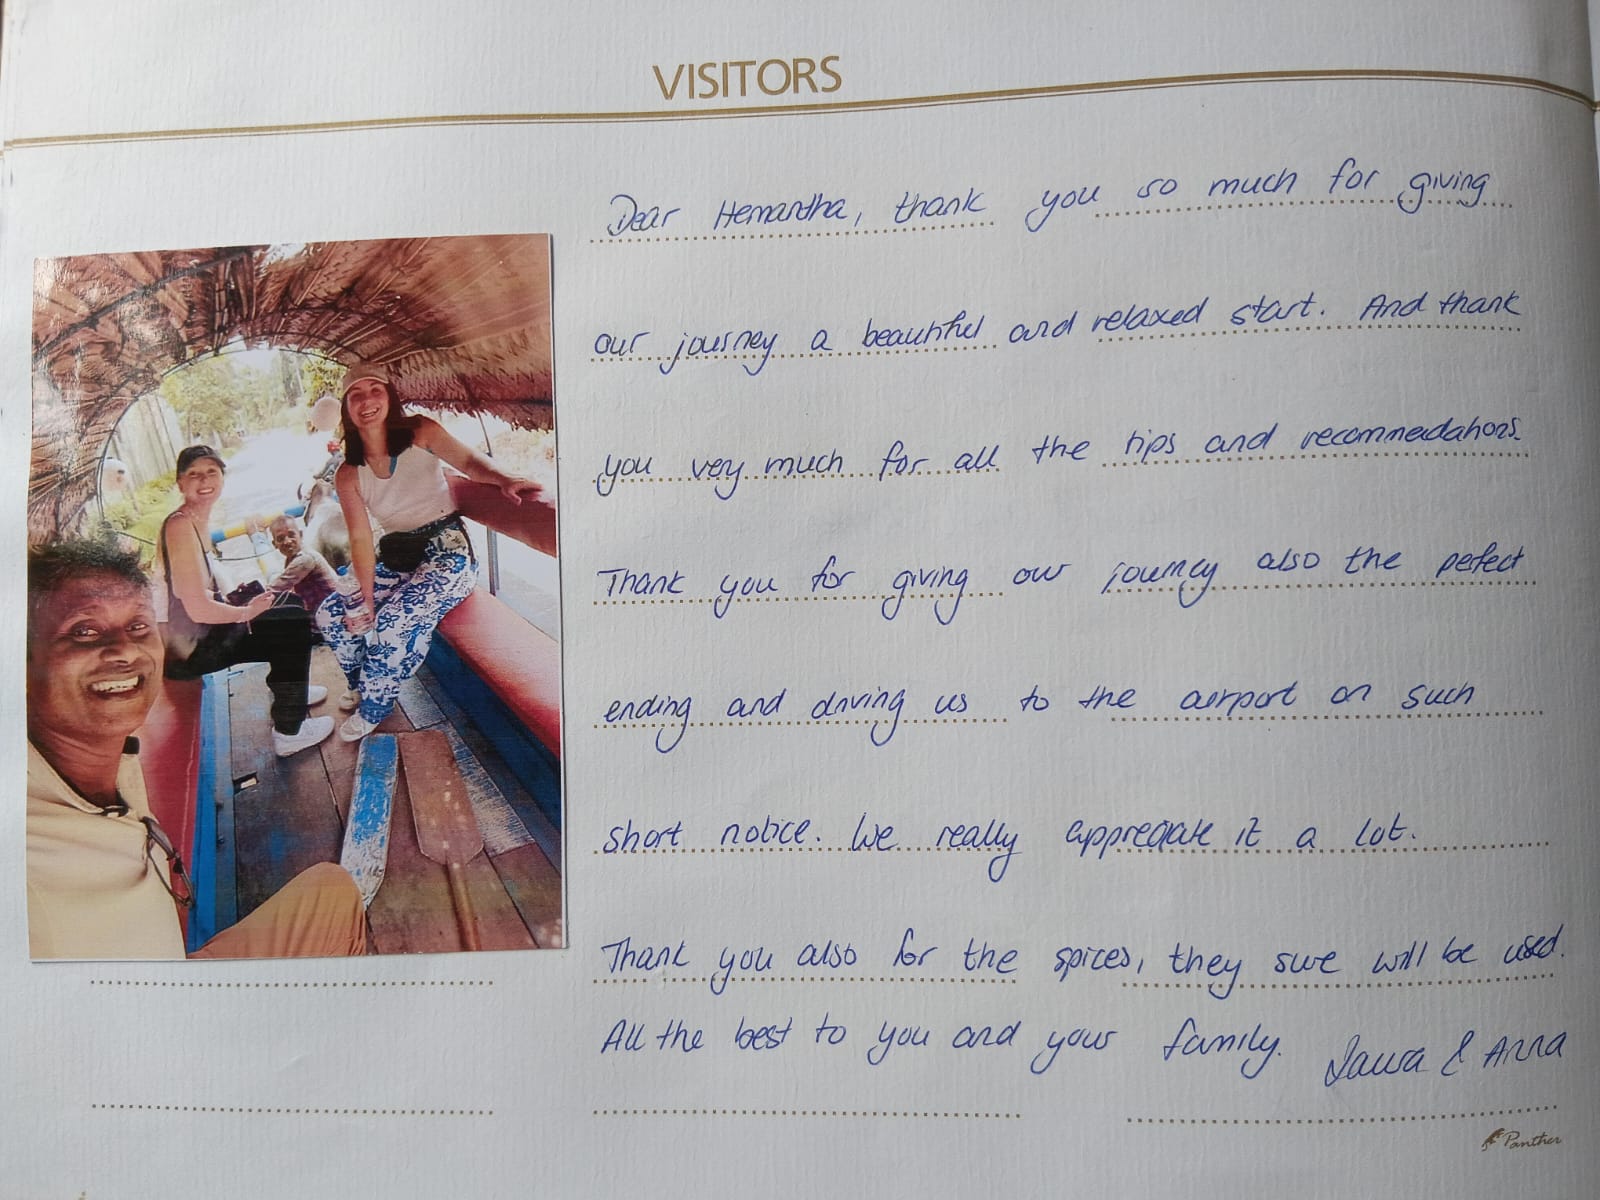 VISITORS
Dear Hemantha, thank you so much for giving
our journey a beautiful and relaxed start. And thank
you very much for all the tips and recommendations.
Thank you for giving our journey also the perfect
ending and driving us to the airport on such
short notice. We really appreciate it a lot.
Thank you also for the spices, they sure will be used.
All the best to you and your family. Laura & Anna
Panther